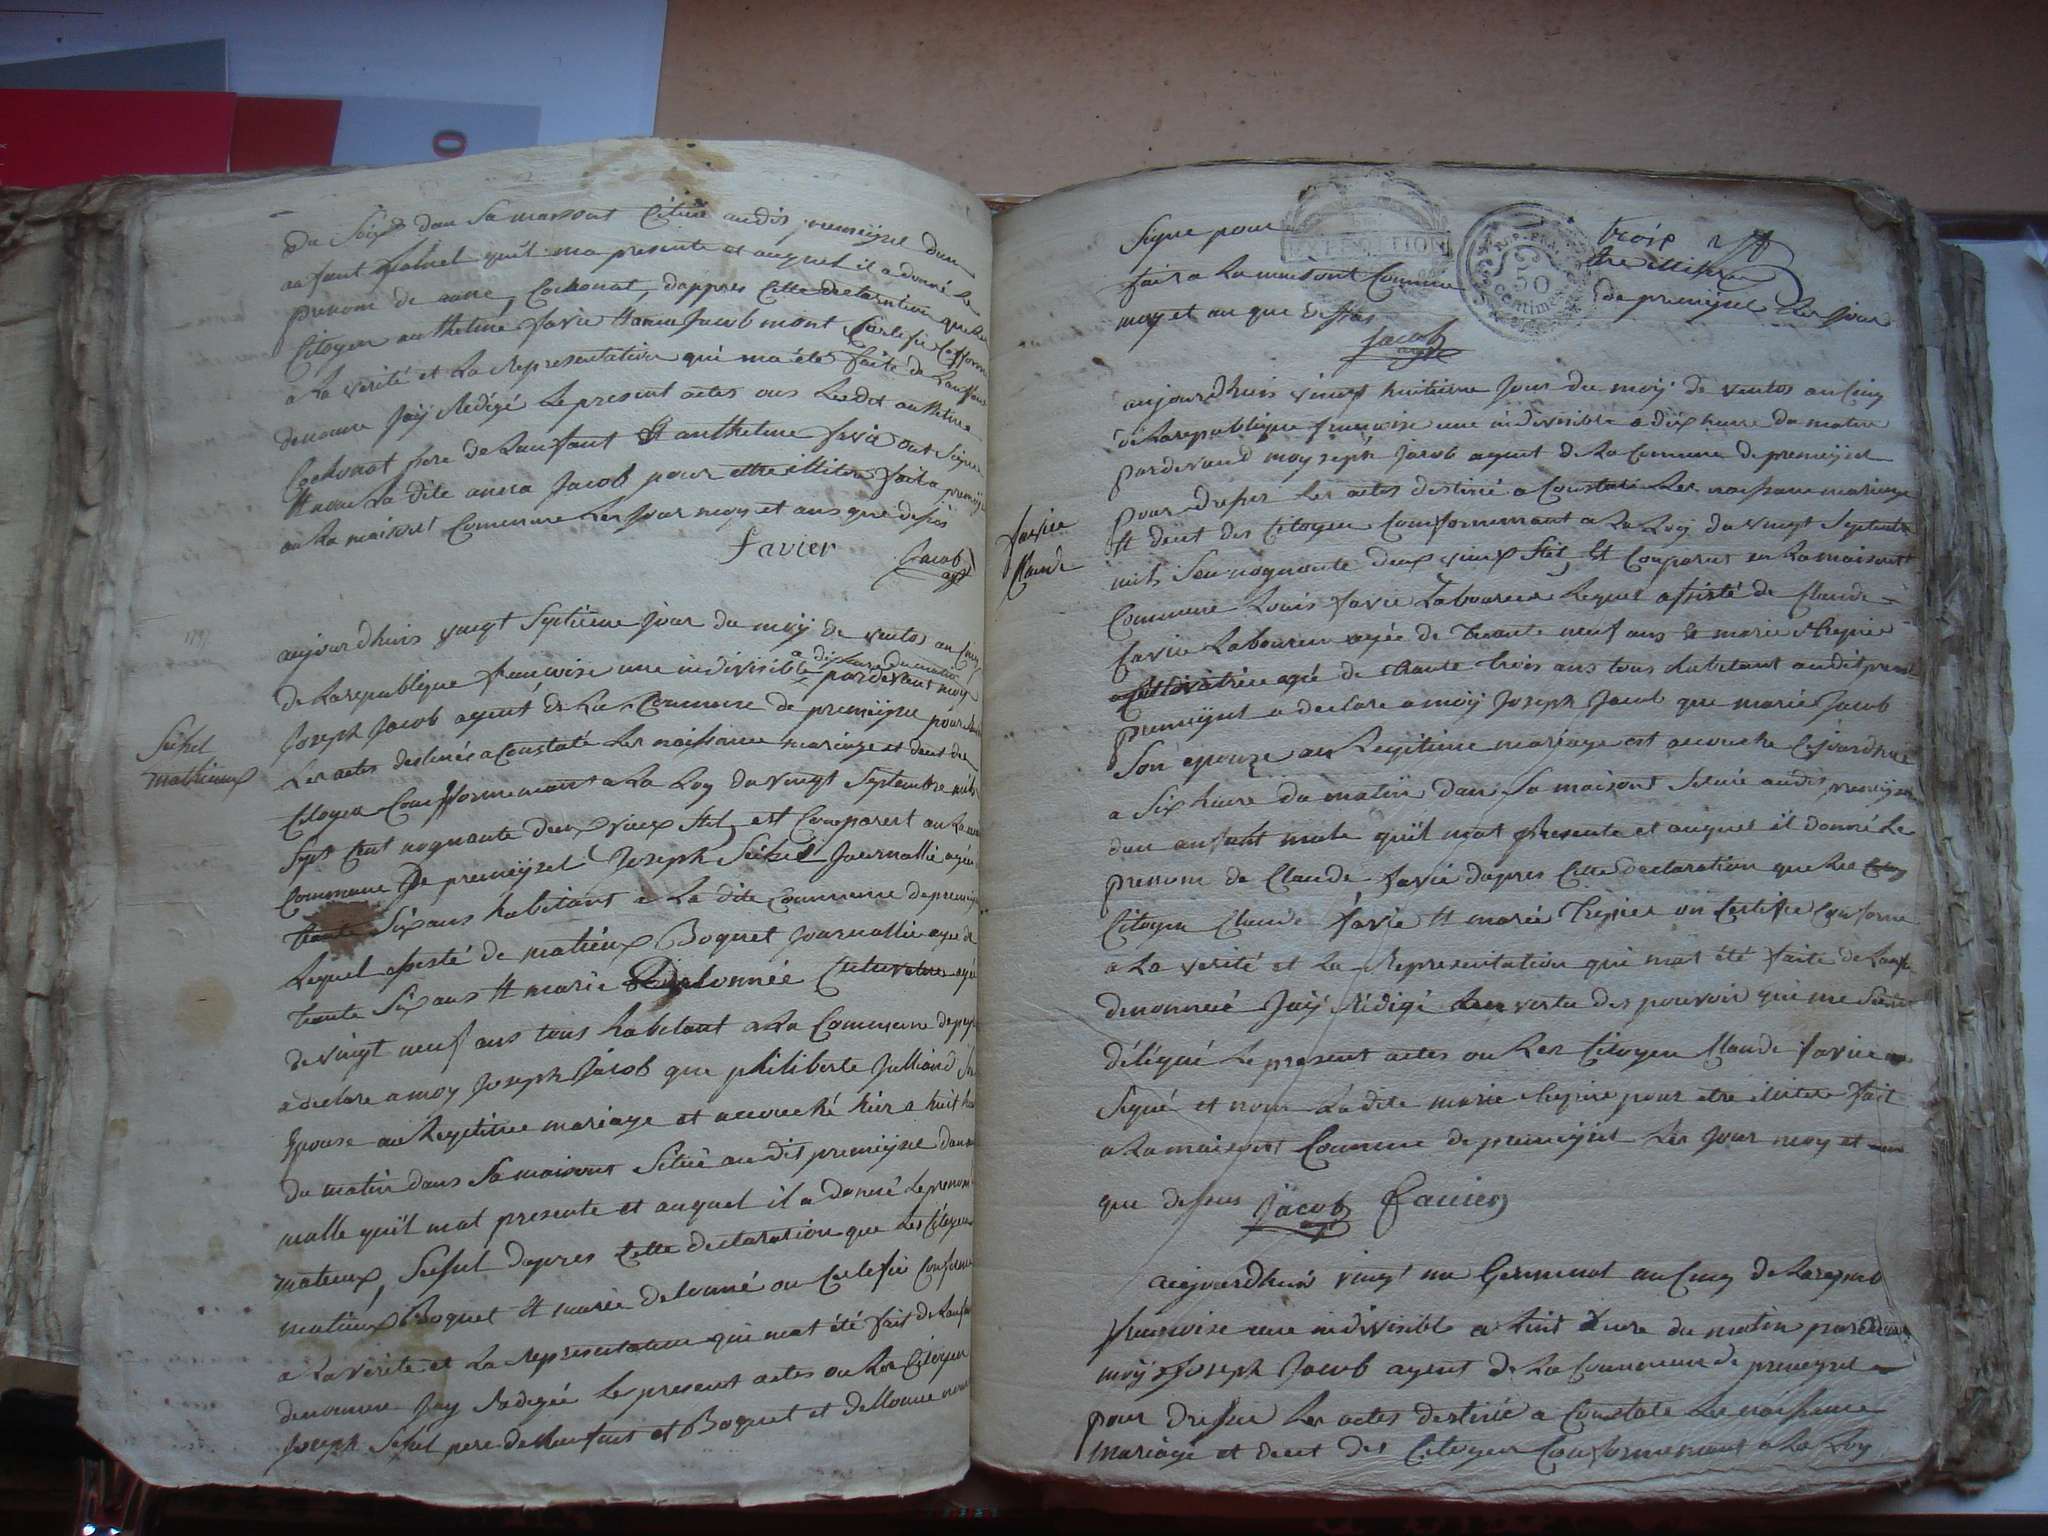 du Soir dan Sa maisont Cituée audis premeysel dun
anfant qu'il ma presente et auquel il a donné Le
prenom de anne, Cochonat, dappres Cette declaration que Les
Citoyen anthelme favie et anne Jacob mont Certifie Conforme
a La verité et La Representation qui ma été faite de Lanfant
denomé Jay Rédigé Le present actes
Cochonat pere de Lanfant et anthelme favie ont Signe
et nom La dite anna Jacob pour etre illitere fait a premeysel
au La maisont Commune Les Jour moy et ans que desus
favier
Jacob
agt
1797
aujourdhuis vingt Septieme Jour du moy de ventos an Cinq
de Larepublique francoise une indivisible a dix heure du matin pardevant moy
Joseph Jacob agent de La Commune de premeysel pour
Les actes destinés a Constaté Les naissance mariage et deces des
Sechel
mathieux
Citoyen Confformemant a La Loy du vingt Septembre mil
Sept Cent nognante deux vieux Stil, est Comparest au La maisont
Commune De premeysel Joseph Sechel Journallie agée
trante Six ans habitant a La dite Commune de premeysel
Lequel assisté de matieux Boquet Journallie agee de
trante Six ans et marie Delonnée Cultivatrice agée
de vingt neuf ans tous habitant a La Commune de
a declare a moy Joseph Jacob que philiberte Julliand Son
Epouse au Legitime mariage et accouché hier a huit heure
du matin dans Sa maisont Sitüé au dit premeysel dun
malle qu'il mat presente et auquel il a donné Le prenom
matieux, Sechel dapres Cette declaration que Les Citoyen
matieux Boquet et marie delonné on Certefié Conforme
a La verite et La representation qui mat été fait de Lanfant
denommé Jay Redigée Le present actes ou Les Citoyen
Joseph Sechel pere de Lanfant et Boquet et dellonne nom
Signe pour
trois
etre illitere
fait a La maisont Commune
de premeysel Les Jour
moy et an que dessus
Jacob
agt
REP. FRA.
50
centimes
aujourdhuis vingt huitieme Jour du moy de ventos an Cinq
de Larepublique francoise une indivisible a dix heure du matin
pardevand moy Joseph Jacob agent de La Commune de premeysel
pour dresser Les actes destiné a Constaté Les naissance mariage
et decet des Citoyen Conformemant a La Loy du vingt Septembre
favie
Claude
mil Sen nognante deux vieux Stil, et Comparus en La maisont
Commune Louis favie Laboureur Lequel assisté de Claude
favie Laboureur agée de trante neuf ans et marie
Cultivatrice agé de trante trois ans tous habitant audit
premeysel a declare a moy Joseph Jacob que marie Jacob
Son epouze au Legitime mariage est accouche Cejourdhuis
a Six heure du matin dans Sa maisont Situé audit premeysel
dun anfant male quil mat presente et auquel il donné Le
prenom de Claude favie dapres Cette declaration que Les
Citoyen Claude favie et marie on Certifie Conforme
a La verité et La Representation qui mat été faite de Lanfan
denommé Jay Rédigé vertu des pouvoir qui me Sont
délégué Le present actes ou Les Citoyen Claude favie
Signé et nom La dite marie pour etre illitere fait
a La maisont Commune de premeysel Les Jour moy et an
que dessus Jacob favier
aujourdhuis vingt un Germinal an Cinq de Larepub
francoise une indivisible a huit heure du matin pardevant
moy Joseph Jacob agent de La Commune de premeysel
pour dresser Les actes destiné a Constate Les naissance
mariage et decet des Citoyen Conformemant a La Loy